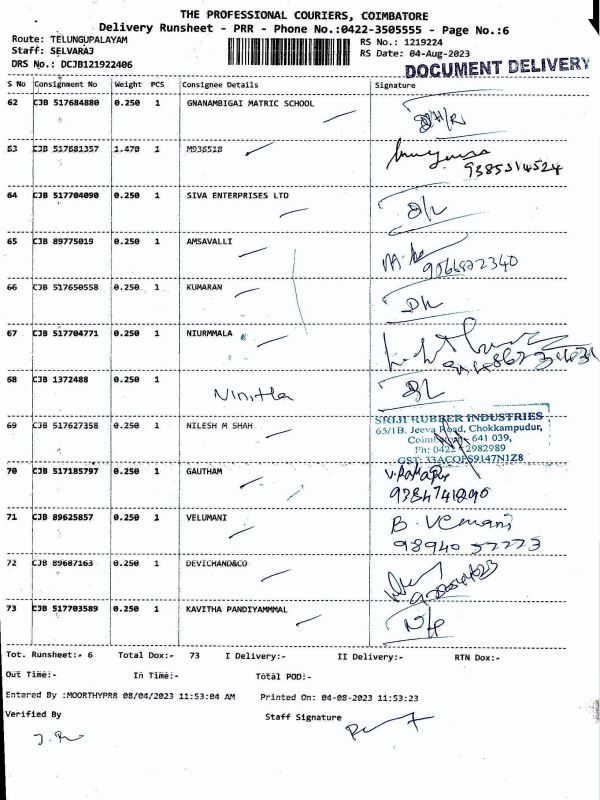 THE PROFESSIONAL COURIERS, COIMBATORE
Delivery Runsheet - PRR - Phone No.:0422-3505555 - Page No.:6
Route: TELUNGUPALAYAM RS No.: 1219224
Staff: SELVARAJ RS Date: 04-Aug-2023
DRS No.: DCJB121922406 DOCUMENT DELIVERY
S No Consignment No Weight PCS Consignee Details Signature
62 CJB 517684880 0.250 1 GNANAMBIGAI MATRIC SCHOOL
63 CJB 517681357 1.470 1 M936518
9385314524
64 CJB 517704090 0.250 1 SIVA ENTERPRISES LTD
65 CJB 89775019 0.250 1 AMSAVALLI
9066872340
66 CJB 517650558 0.250 1 KUMARAN
67 CJB 517704771 0.250 1 NIURMMALA
68 CJB 1372488 0.250 1
Ninitha
69 CJB 517627358 0.250 1 NILESH M SHAH
SRIJI RUBBER INDUSTRIES
65/1B, Jeeva Road, Chokkampudur,
Coimbatore - 641 039,
Ph: 0422 - 2982989
GST: 33ACQFS9147N1Z8
70 CJB 517185797 0.250 1 GAUTHAM
9384741890
71 CJB 89625857 0.250 1 VELUMANI B. Velmani
98940 37273
72 CJB 89687163 0.250 1 DEVICHAND&CO
73 CJB 517703589 0.250 1 KAVITHA PANDIYAMMMAL
Tot. Runsheet:- 6 Total Dox:- 73 I Delivery:- II Delivery:- RTN Dox:-
Out Time:- In Time:- Total POD:-
Entered By :MOORTHYPRR 08/04/2023 11:53:04 AM Printed On: 04-08-2023 11:53:23
Verified By Staff Signature